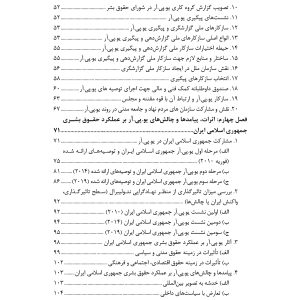 ۱۰. تصویب گزارش گروه کاری یو.پی.آر در شورای حقوق بشر ۵۲
۱۱. نشست‌های پیگیری یو.پی.آر ۵۲
۱۲. سازکارهای ملی گزارشگری و پیگیری یو.پی.آر ۵۳
۱۳. انواع اصلی سازکارهای ملی گزارش‌دهی و پیگیری یو.پی.آر ۵۳
۱۴. حیطه اختیارات سازکار ملی گزارش‌دهی و پیگیری یو.پی.آر ۵۵
۱۵. ساختار و منابع لازم جهت سازکار ملی گزارش‌دهی و پیگیری یو.پی.آر ۵۸
۱۶. نقش سازمان ملل در ایجاد سازکار ملی گزارشگری
۱۷. انتخاب سازکارهای پیگیری
۱۸. صندوق داوطلبانه کمک فنی و مالی جهت اجرای توصیه های یو.پی.آر
۱۹. سازکار یو.پی.آر و ارتباط آن با قوه مقننه و مجلس
۲۰. نقش و مشارکت سازمان های مردم نهاد و جامعه مدنی در روند یو.پی.آر ۶۷
فصل چهارم: اثرات، پیامدها و چالش‌های یو.پی.آر بر عملکرد حقوق بشری
جمهوری اسلامی ایران ۷۱
۱. مشارکت جمهوری اسلامی ایران در یو.پی.آر
الف) مرحله اول یو.پی.آر جمهوری اسلامی ایران و توصیه‌های ارائه شده
(فوریه ۲۰۱۰) ۷۵
ب) مرحله دوم یو.پی.آر جمهوری اسلامی ایران و توصیه‌های ارائه شده (۲۰۱۴) ۸۱
ج) مرحله سوم یو.پی.آر جمهوری اسلامی ایران و توصیه‌های ارائه شده (۲۰۱۹) ۸۶
۲. بررسی میزان تاثیرگذاری از منظر نهادگرایی نئولیبرال (سطح تاثیرگذاری،
واکنش ایران یا چالش‌ها) ۹۲
الف) اولین نشست یو.پی.آر جمهوری اسلامی ایران (۲۰۱۰)
ب) دومین نشست یو.پی.آر جمهوری اسلامی ایران (۲۰۱۴)
ج) سومین نشست یو.پی.آر جمهوری اسلامی ایران (۲۰۱۹)
۳. آثار یو.پی.آر بر عملکرد حقوق بشری جمهوری اسلامی ایران
الف) تأثیرات در زمینه حقوق مدنی و سیاسی ۹۹
ب) تأثیرات در زمینه حقوق اقتصادی، اجتماعی و فرهنگی ۱۰۲
۴. پیامدها و چالش‌های یو.پی.آر بر عملکرد حقوق بشری جمهوری اسلامی ایران ۱۰۳
الف) خدشه به تصویر بین‌المللی
ب) تعارض با سیاست‌های داخلی ۱۰۴